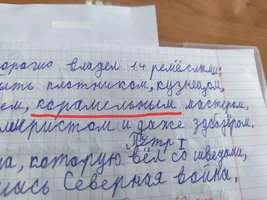 орошо владел 14 ремёслами:
быть плотником, кузнецом,
ем, карамельным мастером,
меристом и даже зубодёром.
Пётр I
на, которую вёл со шведами,
лась Северная война.